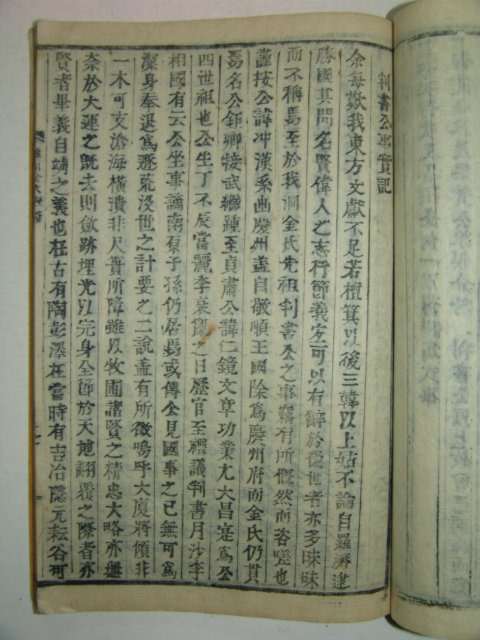 判書公事實記
余每歎我東方文獻不足若檀箕以後三韓以上姑不論自羅濟逮
勝國其間名賢偉人之志行節義宜可以有辭於後世者亦多昧昧
而不稱焉至於我洞金氏先祖判書公之事竊有所慨然而咨嗟也
謹按公諱冲漢系曲慶州盖自敬順王國除爲慶州府而金氏仍貫
焉名公鉅卿接武繼踵至貞肅公諱仁鏡文章功業尤大昌寔爲公
四世祖也公生丁不辰當麗季衰微之日歷官至禮議判書月沙李
相國有云公坐事謫南有子孫仍居焉或傳公見國事之已無可爲
潔身奉退爲遯荒没世之計要之二說盖有所徵嗚呼大廈將傾非
一木可支滄海橫潰非尺簣所障雖以牧圃諸賢之精忠大略亦無
奈於大運之旣去則斂跡埋光以完身全節於天地翻覆之際者亦
賢者畢義自靖之義也在古有陶彭澤在當時有吉冶隱元耘谷可